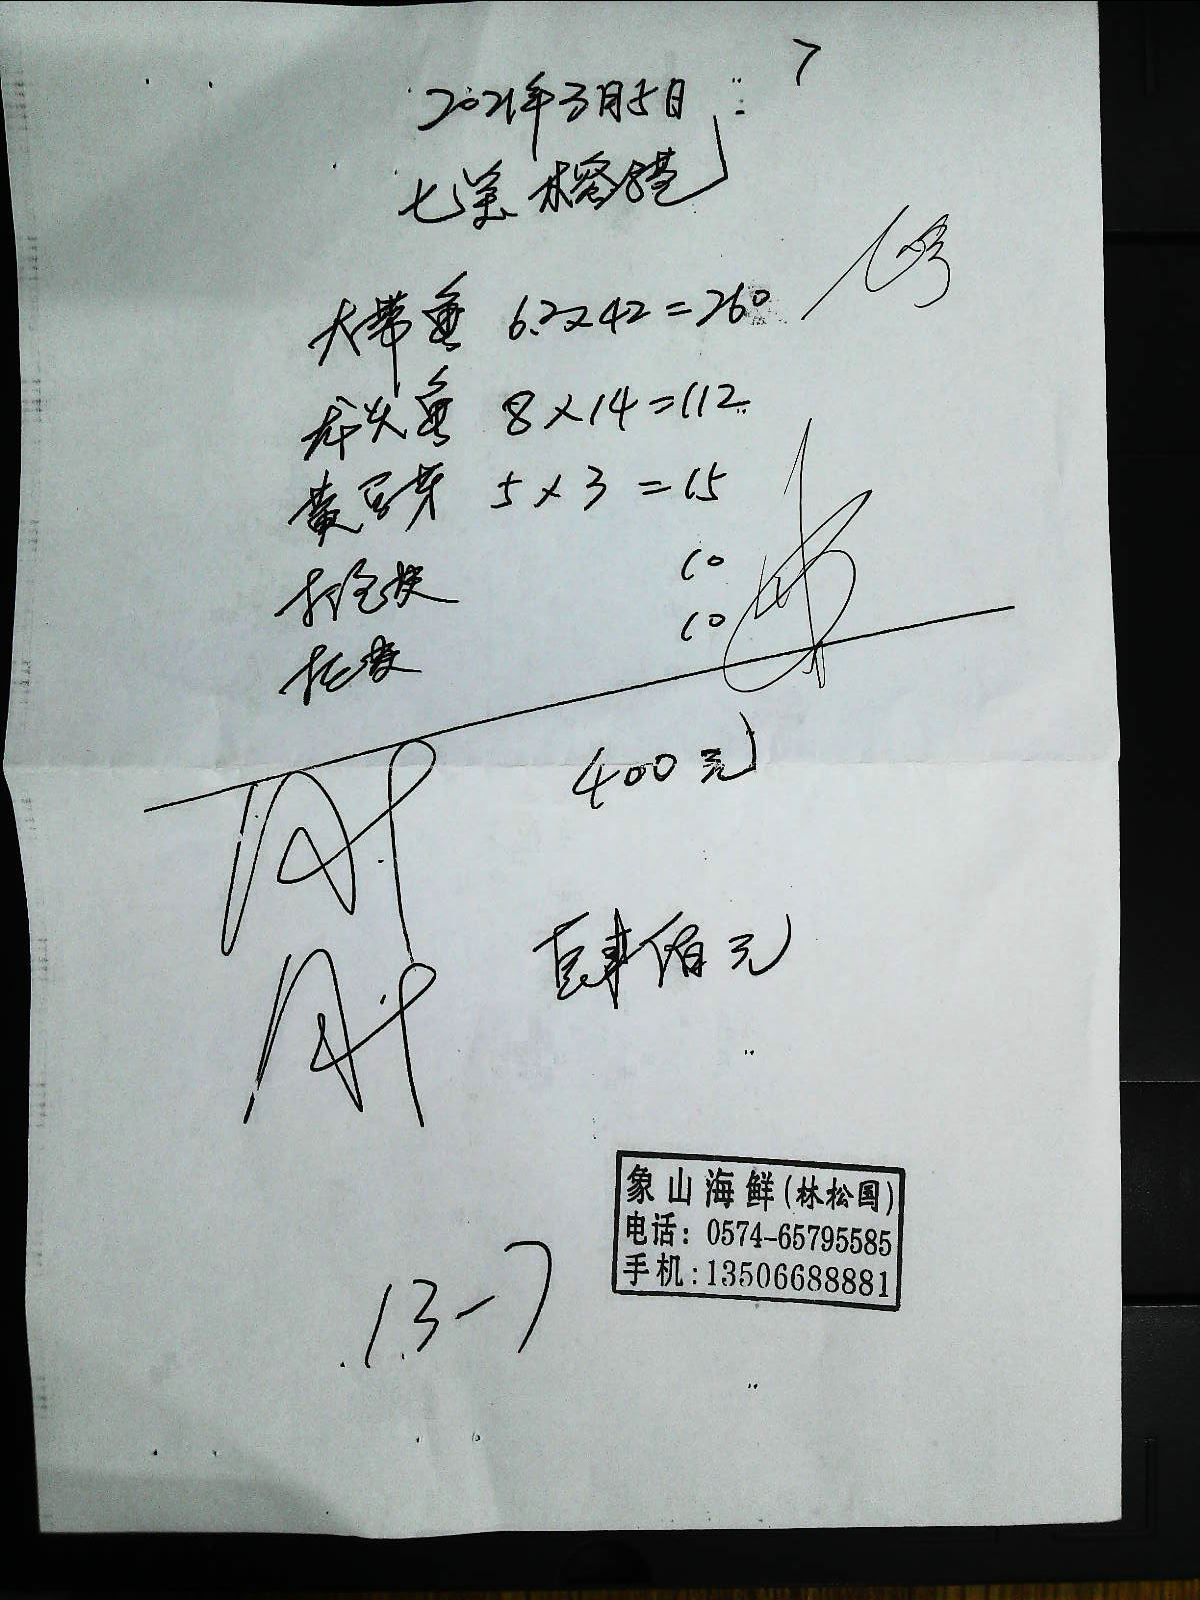 7
2021年3月5日
大带鱼 6.2×42=260
龙头鱼 8×14=112
黄豆芽 5×3=15
10
10
400元
肆佰元
象山海鲜(林松国)
电话: 0574-65795585
手机:13506688881
13-7